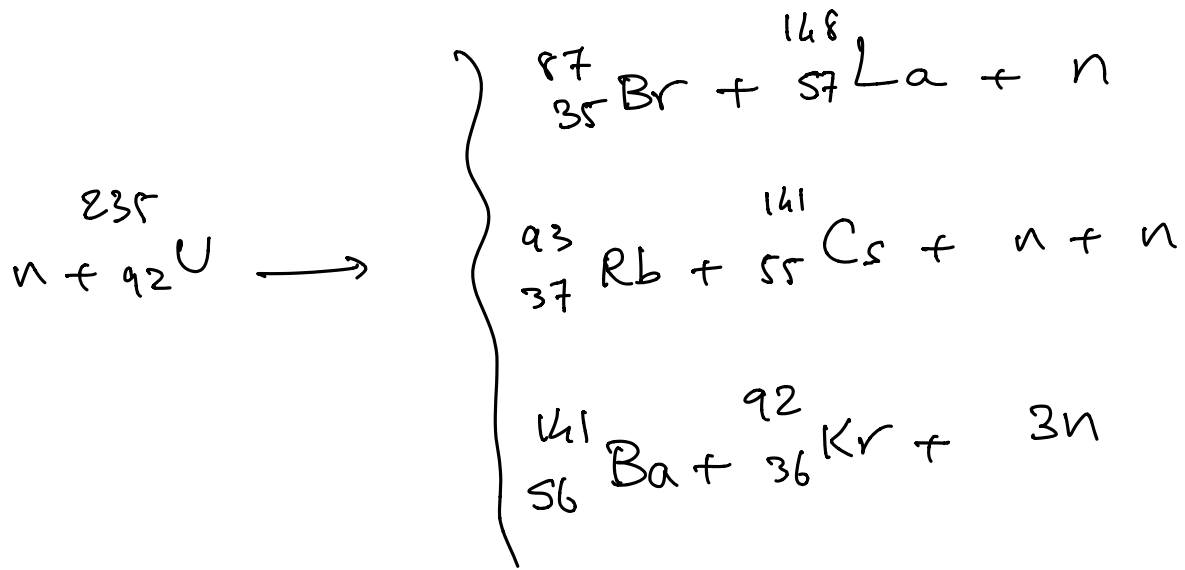 n + ²³⁵₉₂U ⟶
⁸⁷₃₅Br + ¹⁴⁸₅₇La + n
⁹³₃₇Rb + ¹⁴¹₅₅Cs + n + n
¹⁴¹₅₆Ba + ⁹²₃₆Kr + 3n